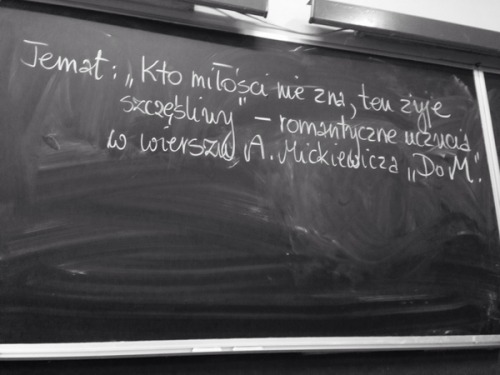 Temat: „Kto miłości nie zna, ten żyje
szczęśliwy" – romantyczne uczucia
w wierszu A. Mickiewicza „Do M".